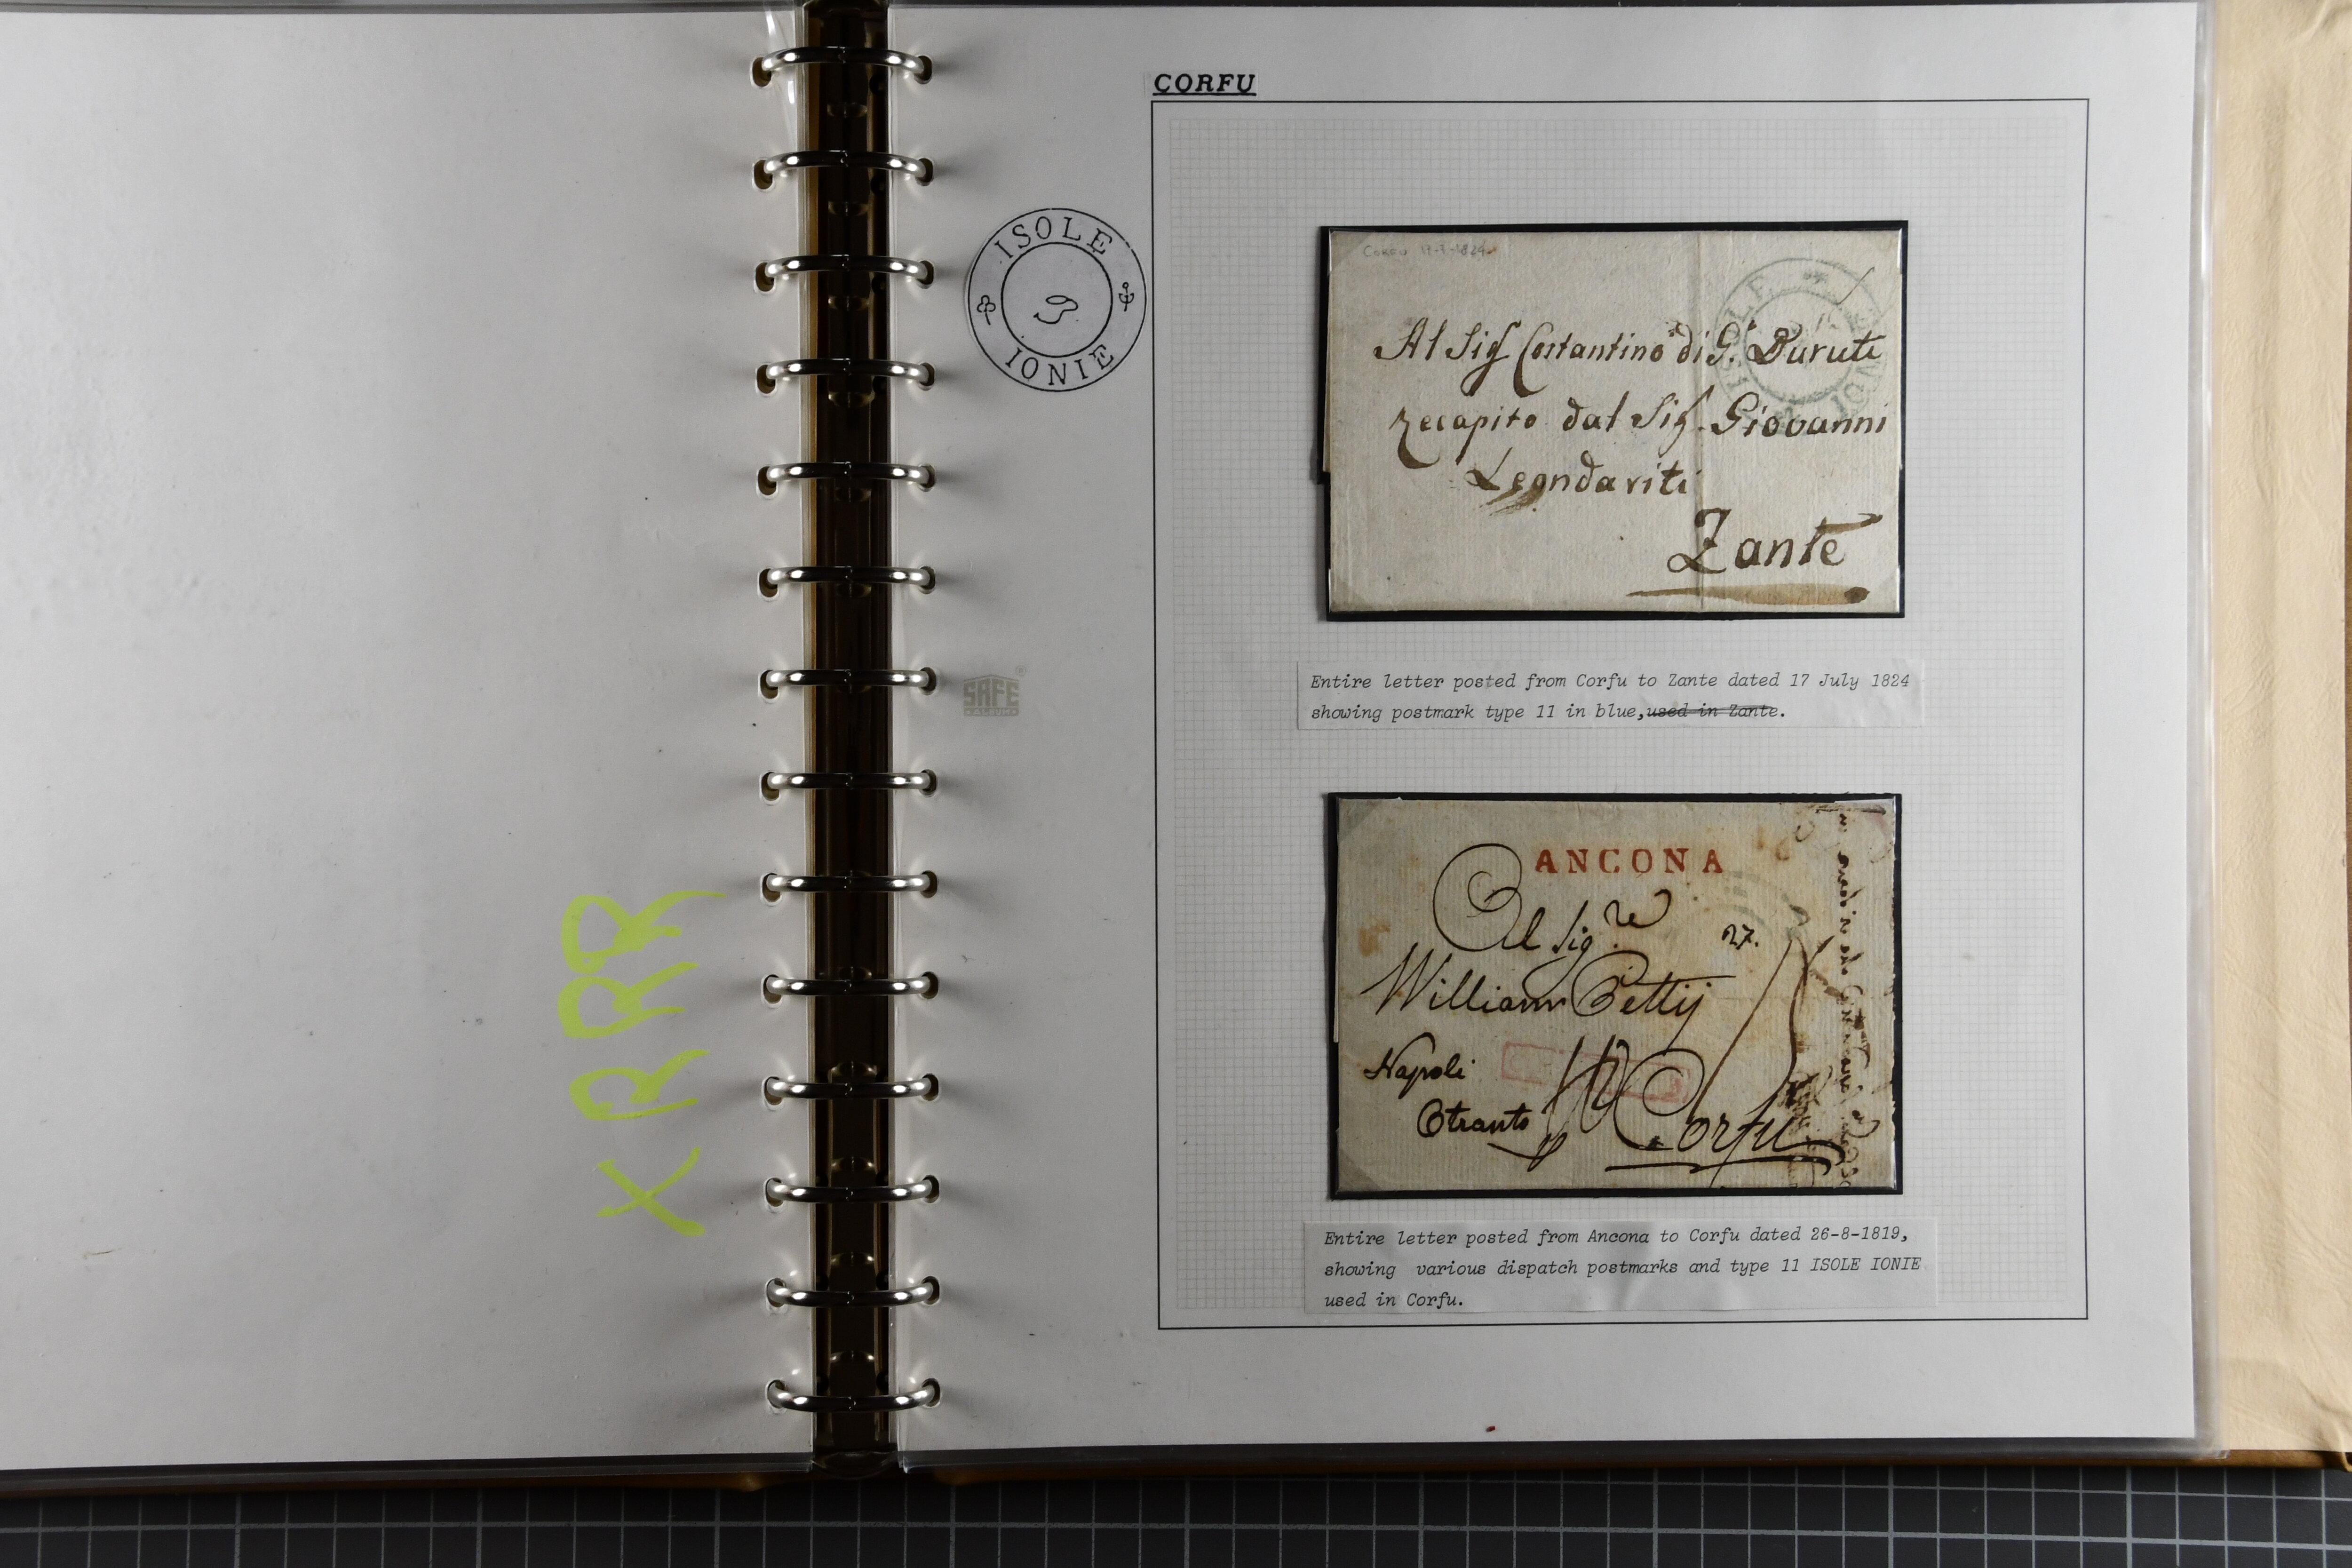 CORFU
ISOLE
IONIE
Corfu 17-7-1824
ISOLE
IONIE
Al Sig Costantino di G. Duruti
recapito dal Sig. Giovanni
Leondariti
Zante
Entire letter posted from Corfu to Zante dated 17 July 1824
showing postmark type 11 in blue,used in Zante.
SAFE
ALBUM
XRRR
ANCONA
Al Sig.re
27.
William Pettij
Napoli
Otranto
Corfu
Entire letter posted from Ancona to Corfu dated 26-8-1819,
showing various dispatch postmarks and type 11 ISOLE IONIE
used in Corfu.